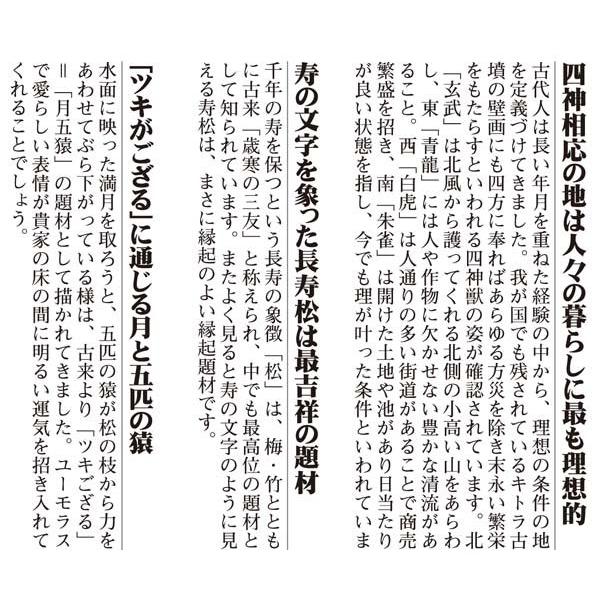 四神相応の地は人々の暮らしに最も理想的
古代人は長い年月を重ねた経験の中から、理想の条件の地
を定義づけてきました。我が国でも残されているキトラ古
墳の壁画にも四方に奉ればあらゆる方災を除き末永い繁栄
をもたらすといわれる四神獣の姿が確認されています。北
「玄武」は北風から護ってくれる北側の小高い山をあらわ
し、東「青龍」には人や作物に欠かせない豊かな清流があ
ること。西「白虎」は人通りの多い街道があることで商売
繁盛を招き、南「朱雀」は開けた土地や池があり日当たり
が良い状態を指し、今でも理が叶った条件といわれていま
寿の文字を象った長寿松は最吉祥の題材
千年の寿を保つという長寿の象徴「松」は、梅・竹ととも
に古来「歳寒の三友」と称えられ、中でも最高位の題材と
して知られています。またよく見ると寿の文字のように見
える寿松は、まさに縁起のよい縁起題材です。
「ツキがござる」に通じる月と五匹の猿
水面に映った満月を取ろうと、五匹の猿が松の枝から力を
あわせてぶら下がっている様は、古来より「ツキござる」
＝「月五猿」の題材として描かれてきました。ユーモラス
で愛らしい表情が貴家の床の間に明るい運気を招き入れて
くれることでしょう。